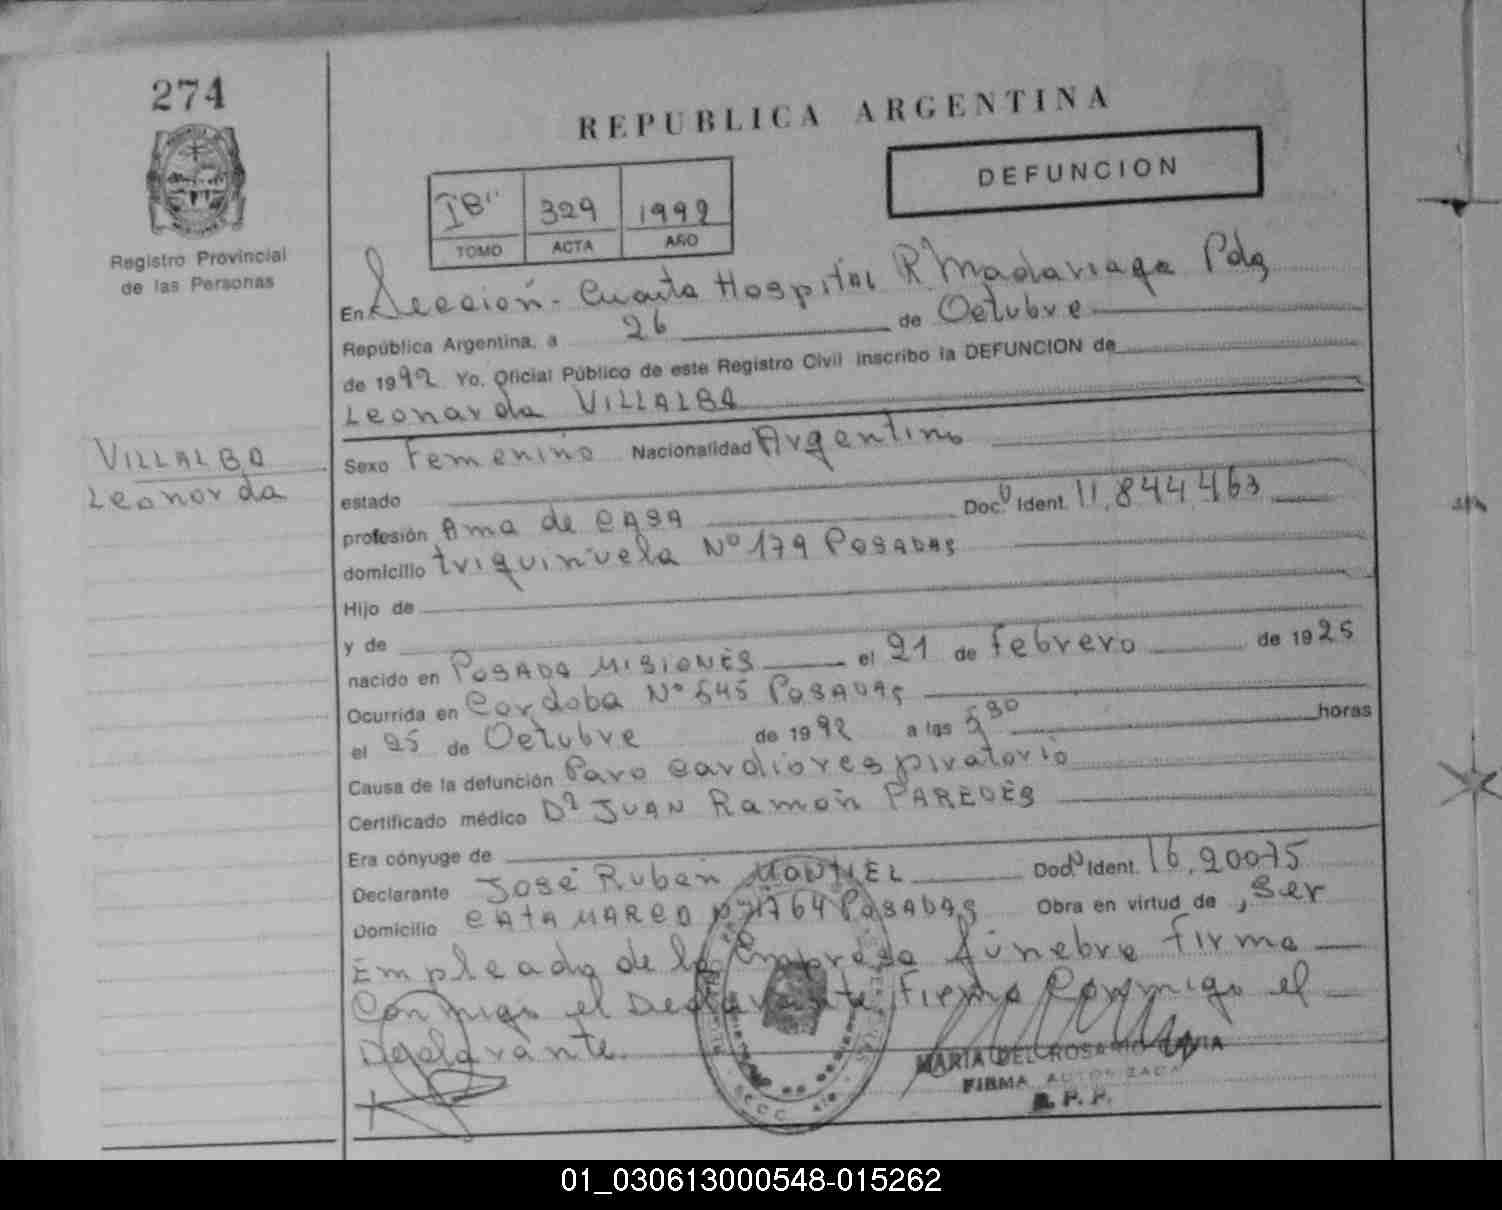 274
REPUBLICA ARGENTINA
DEFUNCION
IB" 329 1992
TOMO ACTA AÑO
Registro Provincial
de las Personas
En Sección - Cuarta Hospital R Madariaga Pdg
República Argentina, a 26 de Octubre
de 1992 Yo. Oficial Público de este Registro Civil inscribo la DEFUNCION de
Leonarda VILLALBA
VILLALBA
Leonarda
Sexo Femenino Nacionalidad Argentino
estado
profesión Ama de CASA Doc. Ident. 11,844,463
domicilio triquiñuela Nº 179 POSADAS
Hijo de
y de
nacido en POSADA MISIONES el 21 de Febrero de 1925
Ocurrida en Cordoba Nº 545 POSADAS
el 25 de Octubre de 1992 a las 5 30 horas
Causa de la defunción Paro cardiorespiratorio
Certificado médico Dº JUAN Ramón PAREDES
Era cónyuge de
Declarante José Ruben MONTIEL Doc. Ident. 16,20075
Domicilio CATAMARCO Nº 1764 POSADAS Obra en virtud de , Ser
Empleado de la Empresa fúnebre firma
Conmigo el Declarante, Firma Conmigo el
Degclarante.
MARIA DEL ROSARIO
FIRMA AUTORIZADA
R. P. P.
01_030613000548-015262